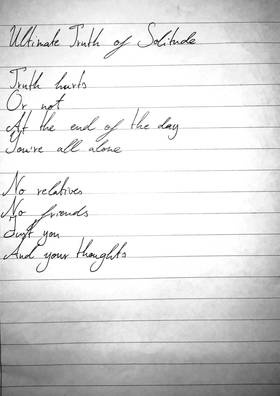 Ultimate Truth of Solitude
Truth hurts
Or not
At the end of the day
You're all alone
No relatives
No friends
Just you
And your thoughts